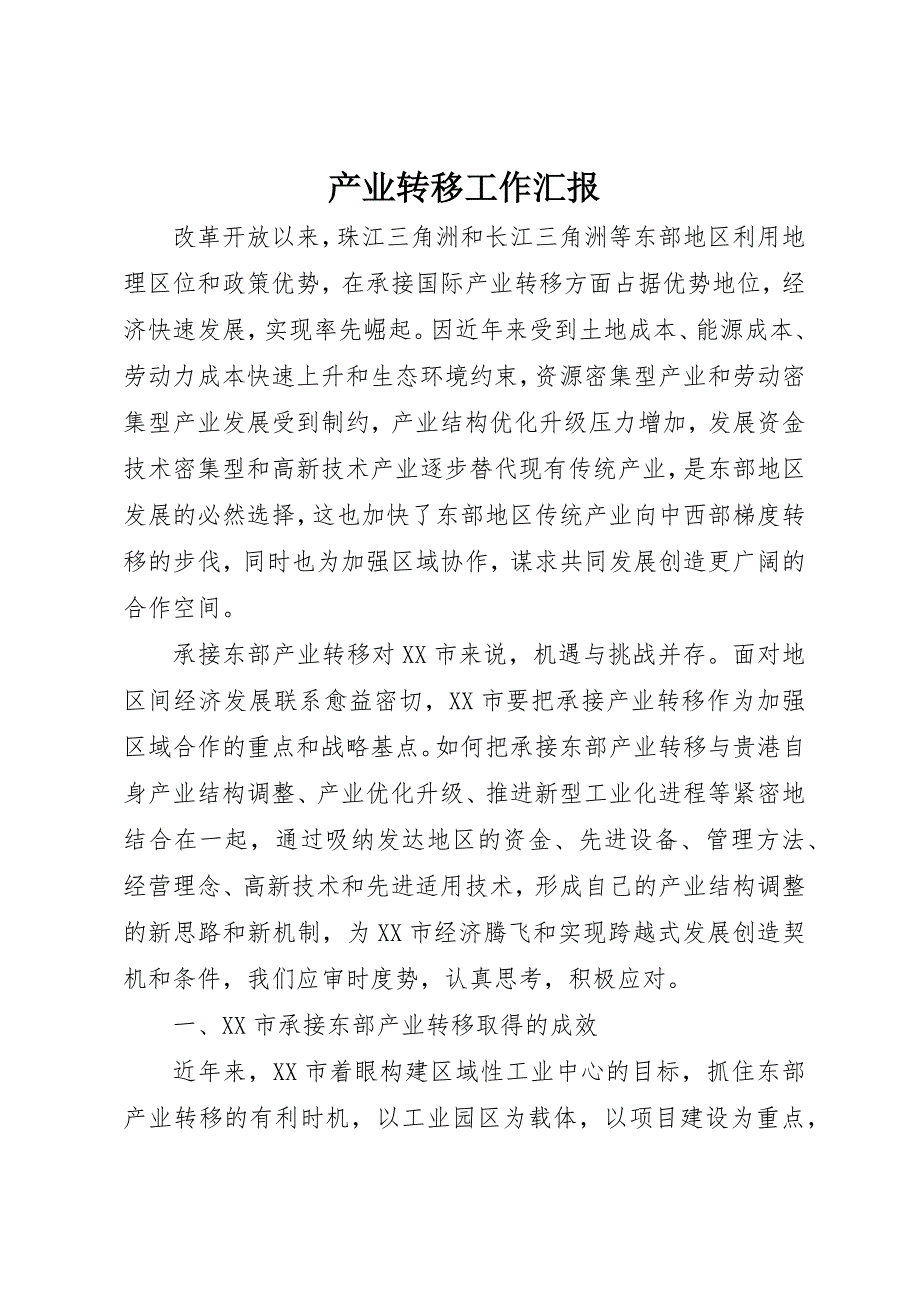 产业转移工作汇报
改革开放以来，珠江三角洲和长江三角洲等东部地区利用地
理区位和政策优势，在承接国际产业转移方面占据优势地位，经
济快速发展，实现率先崛起。因近年来受到土地成本、能源成本、
劳动力成本快速上升和生态环境约束，资源密集型产业和劳动密
集型产业发展受到制约，产业结构优化升级压力增加，发展资金
技术密集型和高新技术产业逐步替代现有传统产业，是东部地区
发展的必然选择，这也加快了东部地区传统产业向中西部梯度转
移的步伐，同时也为加强区域协作，谋求共同发展创造更广阔的
合作空间。
承接东部产业转移对 XX 市来说，机遇与挑战并存。面对地
区间经济发展联系愈益密切，XX 市要把承接产业转移作为加强
区域合作的重点和战略基点。如何把承接东部产业转移与贵港自
身产业结构调整、产业优化升级、推进新型工业化进程等紧密地
结合在一起，通过吸纳发达地区的资金、先进设备、管理方法、
经营理念、高新技术和先进适用技术，形成自己的产业结构调整
的新思路和新机制，为 XX 市经济腾飞和实现跨越式发展创造契
机和条件，我们应审时度势，认真思考，积极应对。
一、XX 市承接东部产业转移取得的成效
近年来，XX 市着眼构建区域性工业中心的目标，抓住东部
产业转移的有利时机，以工业园区为载体，以项目建设为重点，